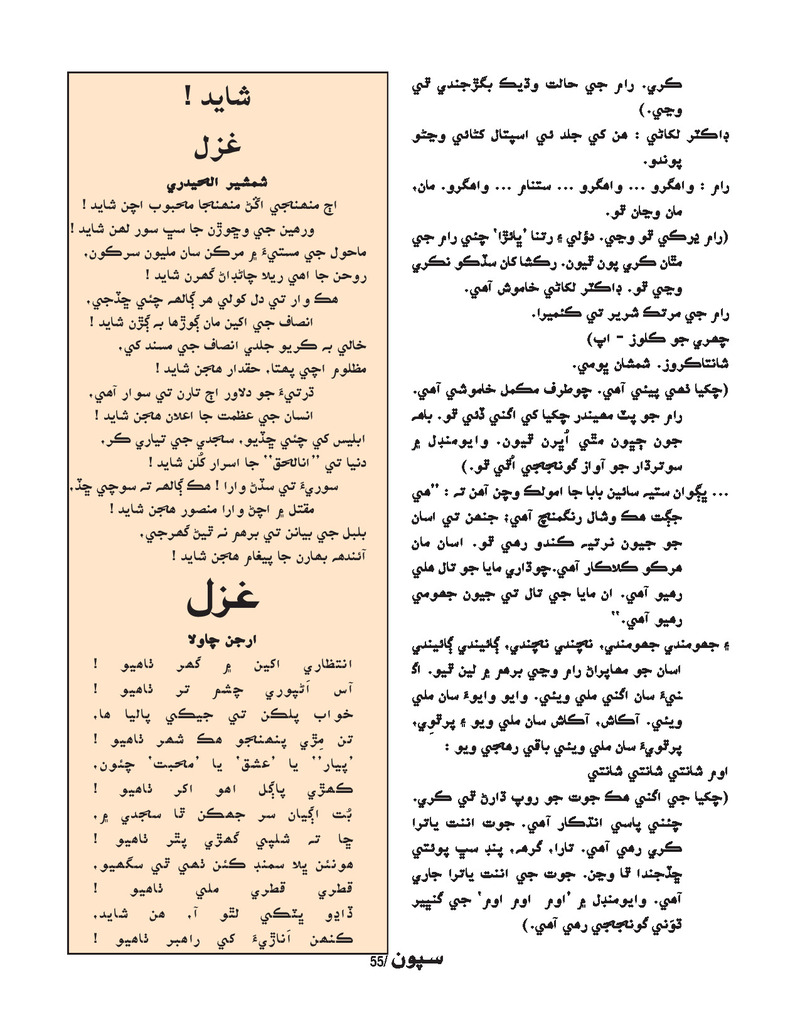 ڪري. رام جي حالت وڌيڪ بگڙجندي ٿي
وڃي.)
ڊاڪٽر لکاڻي : هن کي جلد ئي اسپتال کڻائي وڃڻو
پوندو.
رام : واهگرو ... واهگرو ... ستنام ... واهگرو. مان،
مان وڃان ٿو.
(رام ڍرڪي ٿو وڃي. دؤلي ۽ رتنا ’ڀائڙا‘ چئي رام جي
مٿان ڪري پون ٿيون. رڪشا کان سڏڪو نڪري
وڃي ٿو. ڊاڪٽر لکاڻي خاموش آهي.
رام جي مرتڪ شرير تي ڪئميرا.
چهري جو ڪلوز - اپ)
شانتاڪروز. شمشان ڀومي.
(چکيا ٺهي پيئي آهي. چوطرف مڪمل خاموشي آهي.
رام جو پٽ مهيندر چکيا کي اگني ڏئي ٿو. باهه
جون ڄڀيون مٿي اُڀرن ٿيون. وايومنڊل ۾
سوترڌار جو آواز گونججي اُٿي ٿو.)
... ڀڳوان ستيه سائين بابا جا امولڪ وچن آهن ته : ”هي
جڳت هڪ وشال رنگمنچ آهي؛ جنهن تي اسان
جو جيون نرتيه ڪندو رهي ٿو. اسان مان
هرڪو ڪلاڪار آهي.چوڌاري مايا جو تال هلي
رهيو آهي. ان مايا جي تال تي جيون جهومي
رهيو آهي.“
۽ جهومندي جهومندي، نچندي نچندي، ڳائيندي ڳائيندي
اسان جو مهاپراڻ رام وڃي برهم ۾ لين ٿيو. اگ
نيءَ سان اگني ملي ويئي. وايو وايوءَ سان ملي
ويئي. آڪاش، آڪاش سان ملي ويو ۽ پرٿوِي،
پرٿويءَ سان ملي ويئي باقي رهجي ويو :
اوم شانتي شانتي شانتي
(چکيا جي اگني هڪ جوت جو روپ ڌارڻ ٿي ڪري.
چئني پاسي انڌڪار آهي. جوت اننت ياترا
ڪري رهي آهي. تارا، گرهه، پنڊ سڀ پوئتي
ڇڏجندا ٿا وڃن. جوت جي اننت ياترا جاري
آهي. وايومنڊل ۾ ’اوم اوم اوم‘ جي گنڀير
ڌوَني گونججي رهي آهي.)
شايد !
غزل
شمشير الحيدري
اڄ منهنجي اڱڻ منهنجا محبوب اچن شايد !
ورهين جي وڇوڙن جا سڀ سور لهن شايد !
ماحول جي مستيءَ ۾ مرڪن سان مليون سرڪون،
روحن جا اهي ريلا چانڊاڻ گهرن شايد !
هڪ وار تي دل کولي هر ڳالهه چئي ڇڏجي،
انصاف جي اکين مان ڳوڙها به ڳڙن شايد !
خالي به ڪريو جلدي انصاف جي مسند کي،
مظلوم اچي پهتا، حقدار هجن شايد !
ڌرتيءَ جو دلاور اڄ تارن تي سوار آهي،
انسان جي عظمت جا اعلان هجن شايد !
ابليس کي چئي ڇڏيو، سجدي جي تياري ڪر،
دنيا تي ”انالحق“ جا اسرار کُلن شايد !
سوريءَ تي سڏڻ وارا ! هڪ ڳالهه ته سوچي ڇڏ،
مقتل ۾ اچڻ وارا منصور هجن شايد !
بلبل جي بيانن تي برهم نه ٿيڻ گهرجي،
آئندهه بهارن جا پيغام هجن شايد !
غزل
ارجن چاولا
انتظاري اکين ۾ گهر ٺاهيو !
آس اَڻپوري چشم تر ٺاهيو !
خواب پلڪن تي جيڪي پاليا ها،
تن مِڙي پنهنجو هڪ شهر ٺاهيو !
’پيار“ يا ’عشق‘ يا ’محبت‘ چئون،
ڪهڙي پاڳل اهو اکر ٺاهيو !
بُت اڳيان سر جهڪن ٿا سجدي ۾،
ڇا ته شلپي گهڙي پٿر ٺاهيو !
هونئن ڀلا سمنڊ ڪئن ٺهي ٿي سگهيو،
قطري قطري ملي ٺاهيو !
ڏاڍو ڀٽڪي لٿو آ، هن شايد،
ڪنهن اَناڙيءَ کي راهبر ٺاهيو !
سپون /55